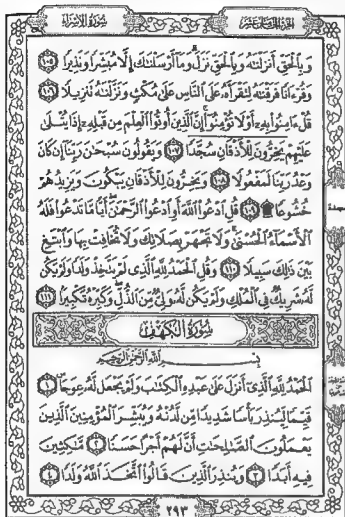 الجزء الخامس عشر
سورة الإسراء
وَبِالْحَقِّ أَنزَلْنَاهُ وَبِالْحَقِّ نَزَلَ وَمَا أَرْسَلْنَاكَ إِلَّا مُبَشِّرًا وَنَذِيرًا ١٠٥
وَقُرْءَانًا فَرَقْنَاهُ لِتَقْرَأَهُ عَلَى النَّاسِ عَلَى مُكْثٍ وَنَزَّلْنَاهُ تَنزِيلًا ١٠٦
قُلْ ءَامِنُوا بِهِ أَوْ لَا تُؤْمِنُوا إِنَّ الَّذِينَ أُوتُوا الْعِلْمَ مِن قَبْلِهِ إِذَا يُتْلَى
عَلَيْهِمْ يَخِرُّونَ لِلْأَذْقَانِ سُجَّدًا ١٠٧ وَيَقُولُونَ سُبْحَانَ رَبِّنَا إِن كَانَ
وَعْدُ رَبِّنَا لَمَفْعُولًا ١٠٨ وَيَخِرُّونَ لِلْأَذْقَانِ يَبْكُونَ وَيَزِيدُهُمْ
خُشُوعًا ۩ ١٠٩ قُلِ ادْعُوا اللَّهَ أَوِ ادْعُوا الرَّحْمَنَ أَيًّا مَّا تَدْعُوا فَلَهُ
الْأَسْمَاءُ الْحُسْنَى وَلَا تَجْهَرْ بِصَلَاتِكَ وَلَا تُخَافِتْ بِهَا وَابْتَغِ
بَيْنَ ذَلِكَ سَبِيلًا ١١٠ وَقُلِ الْحَمْدُ لِلَّهِ الَّذِي لَمْ يَتَّخِذْ وَلَدًا وَلَمْ يَكُن
لَّهُ شَرِيكٌ فِي الْمُلْكِ وَلَمْ يَكُن لَّهُ وَلِيٌّ مِّنَ الذُّلِّ وَكَبِّرْهُ تَكْبِيرًا ١١١
سورة الكهف
بسم الله الرحمن الرحيم
الْحَمْدُ لِلَّهِ الَّذِي أَنزَلَ عَلَى عَبْدِهِ الْكِتَابَ وَلَمْ يَجْعَل لَّهُ عِوَجًا ١
قَيِّمًا لِّيُنذِرَ بَأْسًا شَدِيدًا مِّن لَّدُنْهُ وَيُبَشِّرَ الْمُؤْمِنِينَ الَّذِينَ
يَعْمَلُونَ الصَّالِحَاتِ أَنَّ لَهُمْ أَجْرًا حَسَنًا ٢ مَّاكِثِينَ
فِيهِ أَبَدًا ٣ وَيُنذِرَ الَّذِينَ قَالُوا اتَّخَذَ اللَّهُ وَلَدًا ٤
٢٩٣
سجدة